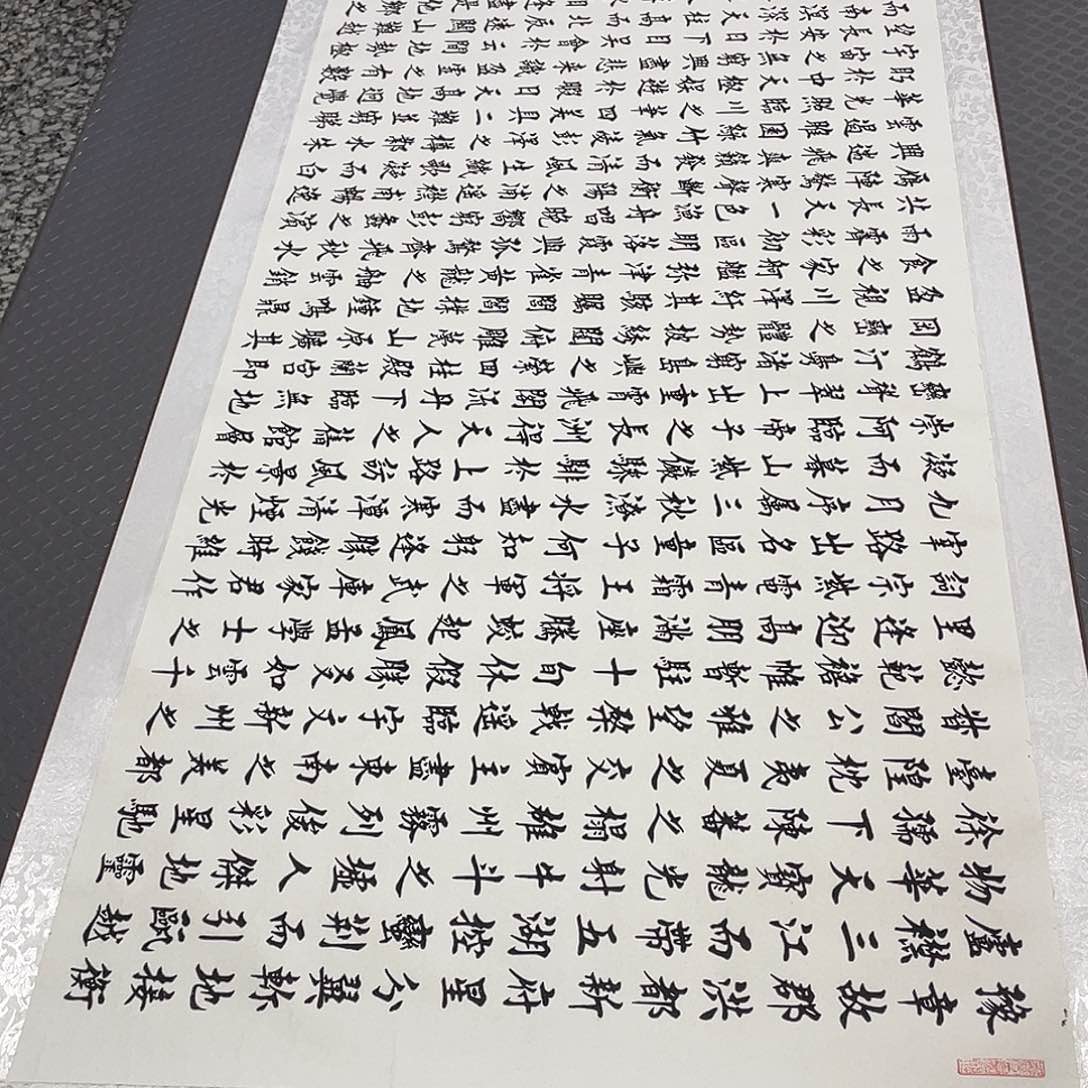 豫章故郡洪都新府星分翼軫地接衡
廬襟三江而帶五湖控蠻荊而引甌越
物華天寶龍光射牛斗之墟人傑地靈
徐孺下陳蕃之榻雄州霧列俊彩星馳
臺隍枕夷夏之交賓主盡東南之美都
督閻公之雅望棨戟遥臨宇文新州之
懿範襜帷暫駐十旬休假勝友如雲千
里逢迎高朋滿座騰蛟起鳳孟學士之
詞宗紫電青霜王將軍之武庫家君作
宰路出名區童子何知躬逢勝餞時維
九月序属三秋潦水盡而寒潭清煙光
凝而暮山紫儼驂騑於上路訪風景於
崇阿臨帝子之長洲得天人之舊館層
巒聳翠上出重霄飛閣流丹下臨無地
鶴汀鳧渚窮島嶼之縈囘桂殿蘭宮即
岡巒之體勢披繡闥俯雕甍山原曠其
盈視川澤紆其駭矚閭閻撲地鐘鳴鼎
食之家舸艦弥津青雀黃龍之舳雲銷
雨霽彩徹區明落霞與孤鶩齊飛秋水
共長天一色漁舟唱晚響窮彭蠡之濱
雁陣驚寒聲斷衡陽之浦遥襟甫暢逸
興遄飛爽籟發而清風生纖歌凝而白
雲遏睢園綠竹氣凌彭澤之樽鄴水朱
華光照臨川之筆四美具二難並窮睇
眄於中天極娛遊於暇日天高地迥覺
宇宙之無窮興盡悲來識盈虛之有數
望長安於日下目吳會於雲間地勢極
而南溟深天柱高而北辰遠關山難越